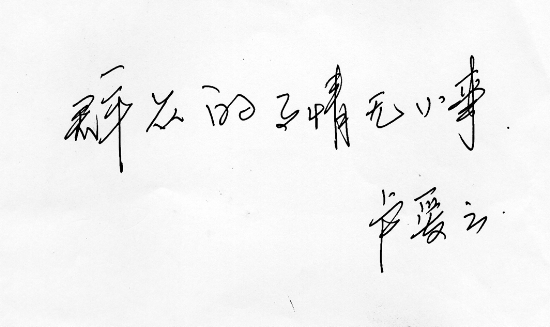 群众的事情无小事.
卢爱云.